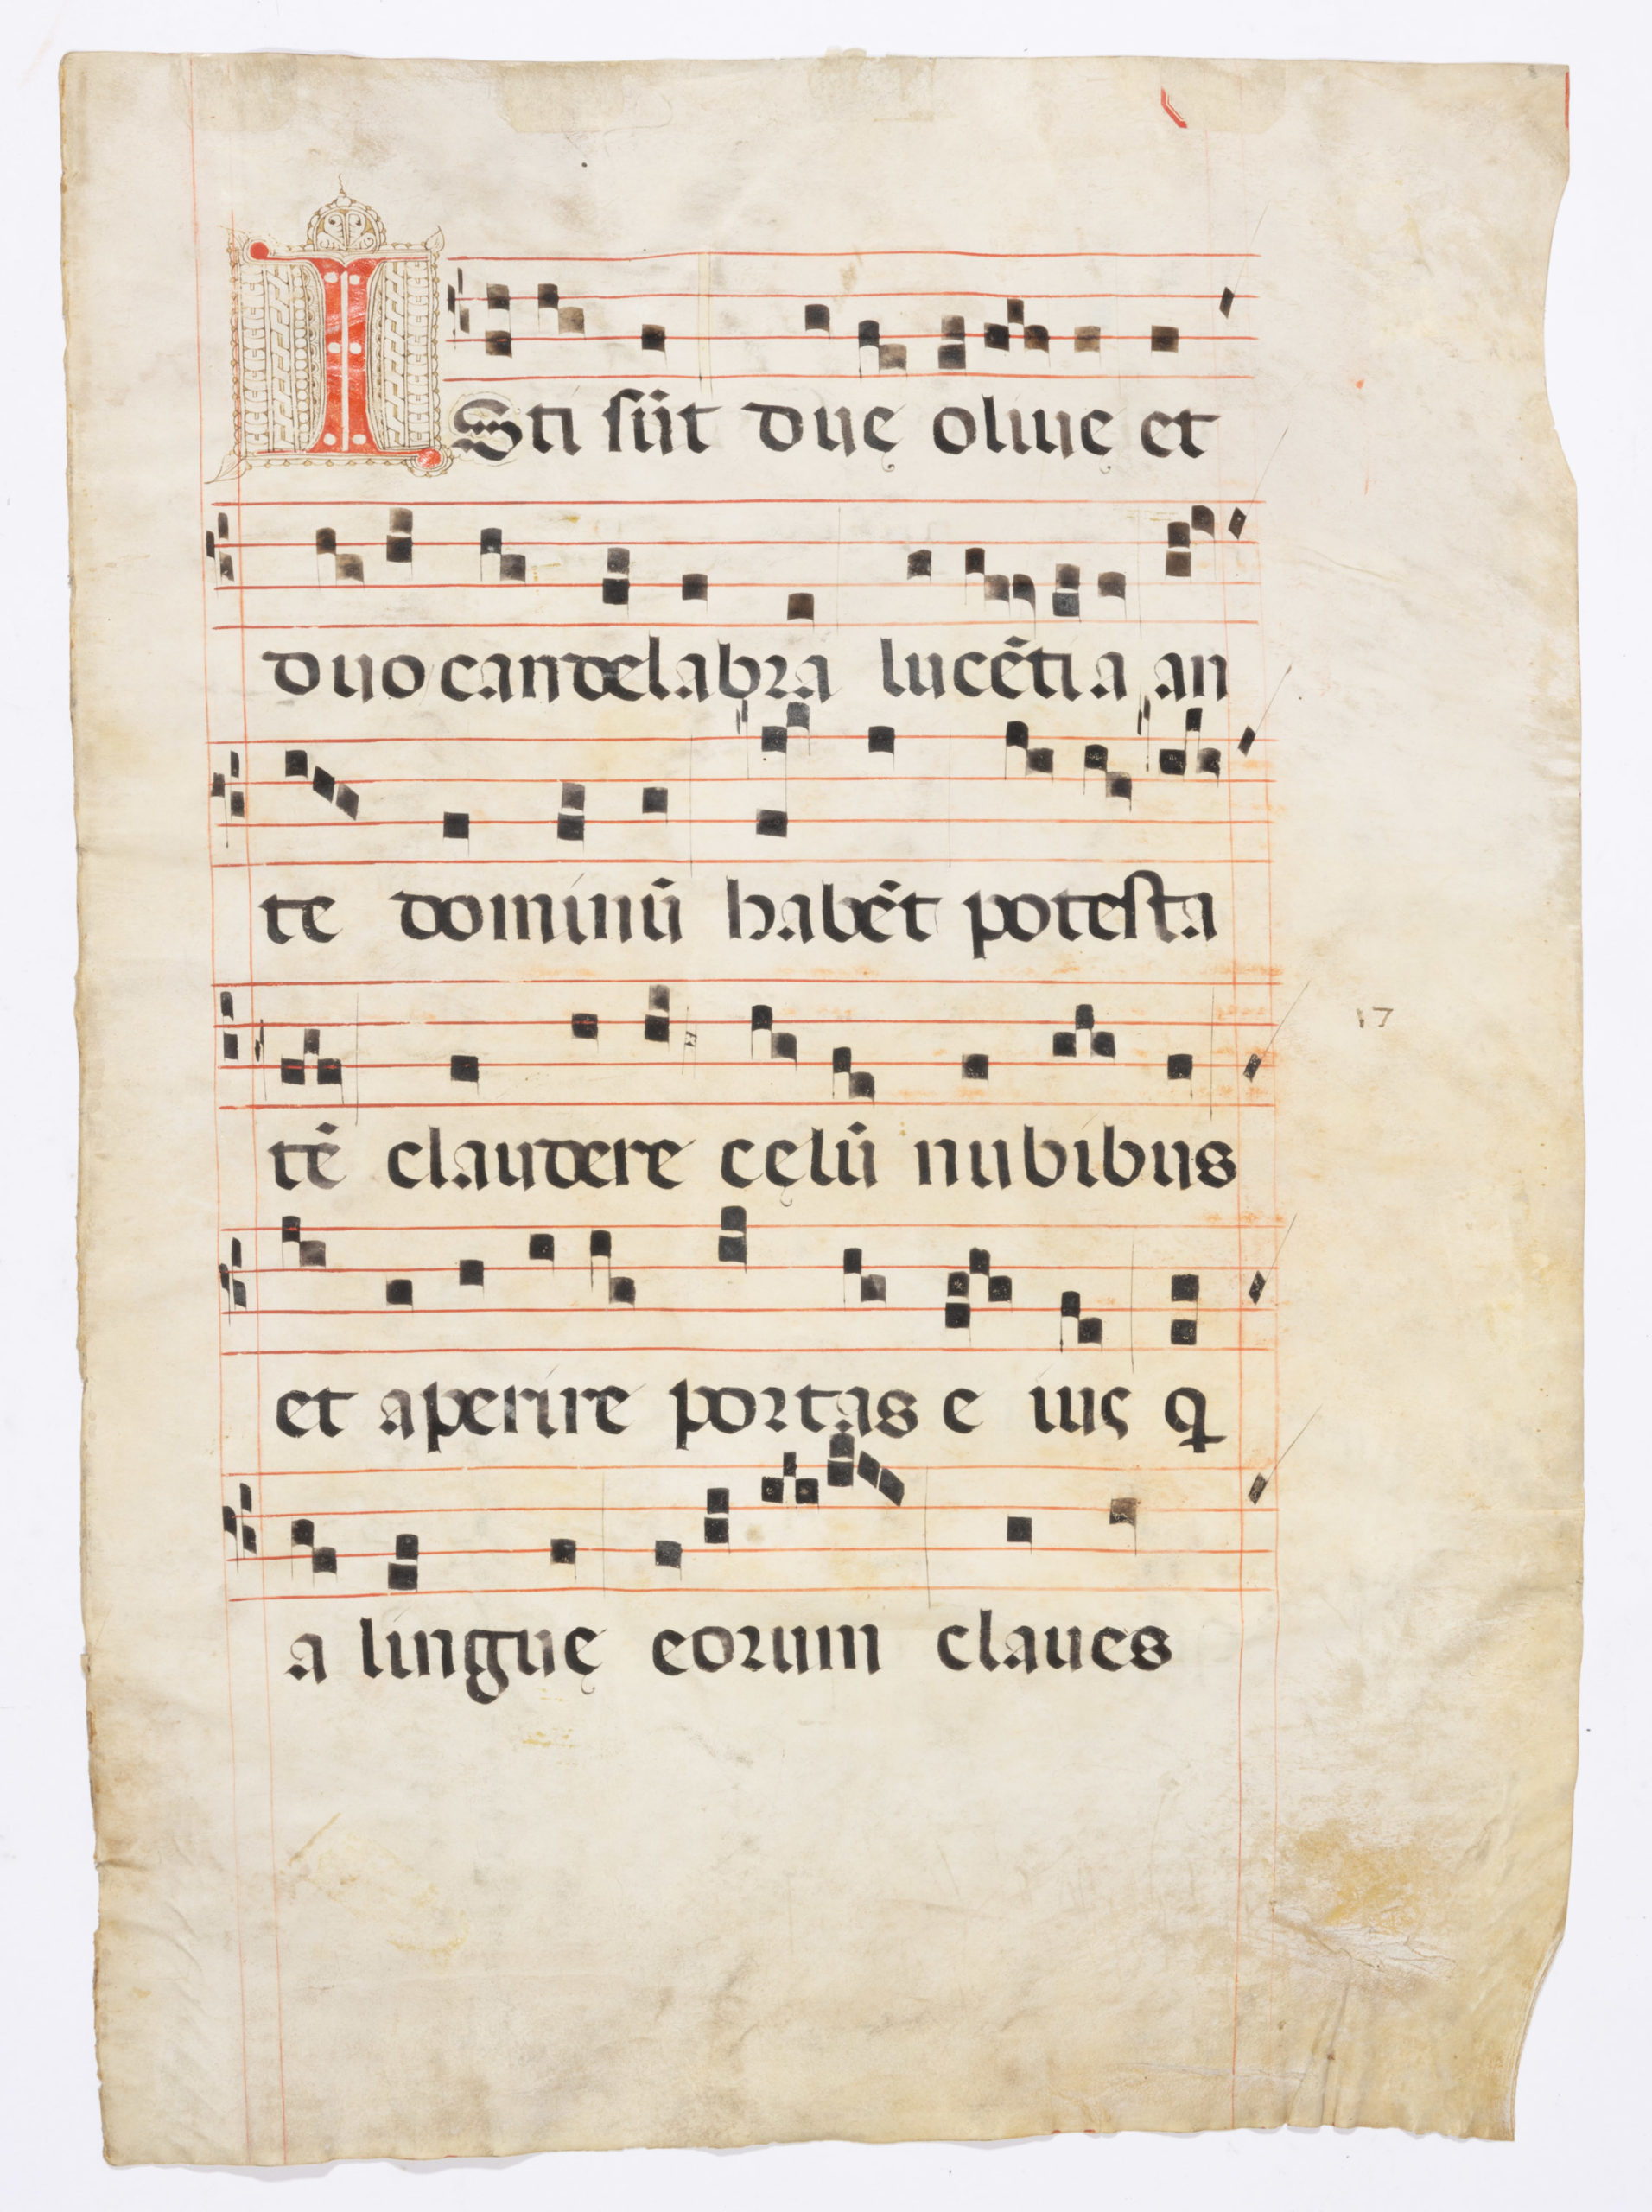 ISti sūt duę oliuę et
duo candelabra lucēti a an
te dominū habēt potesta
17
tē claudere cęlū nubibus
et aperire portas e ius q
a linguę eorum claues